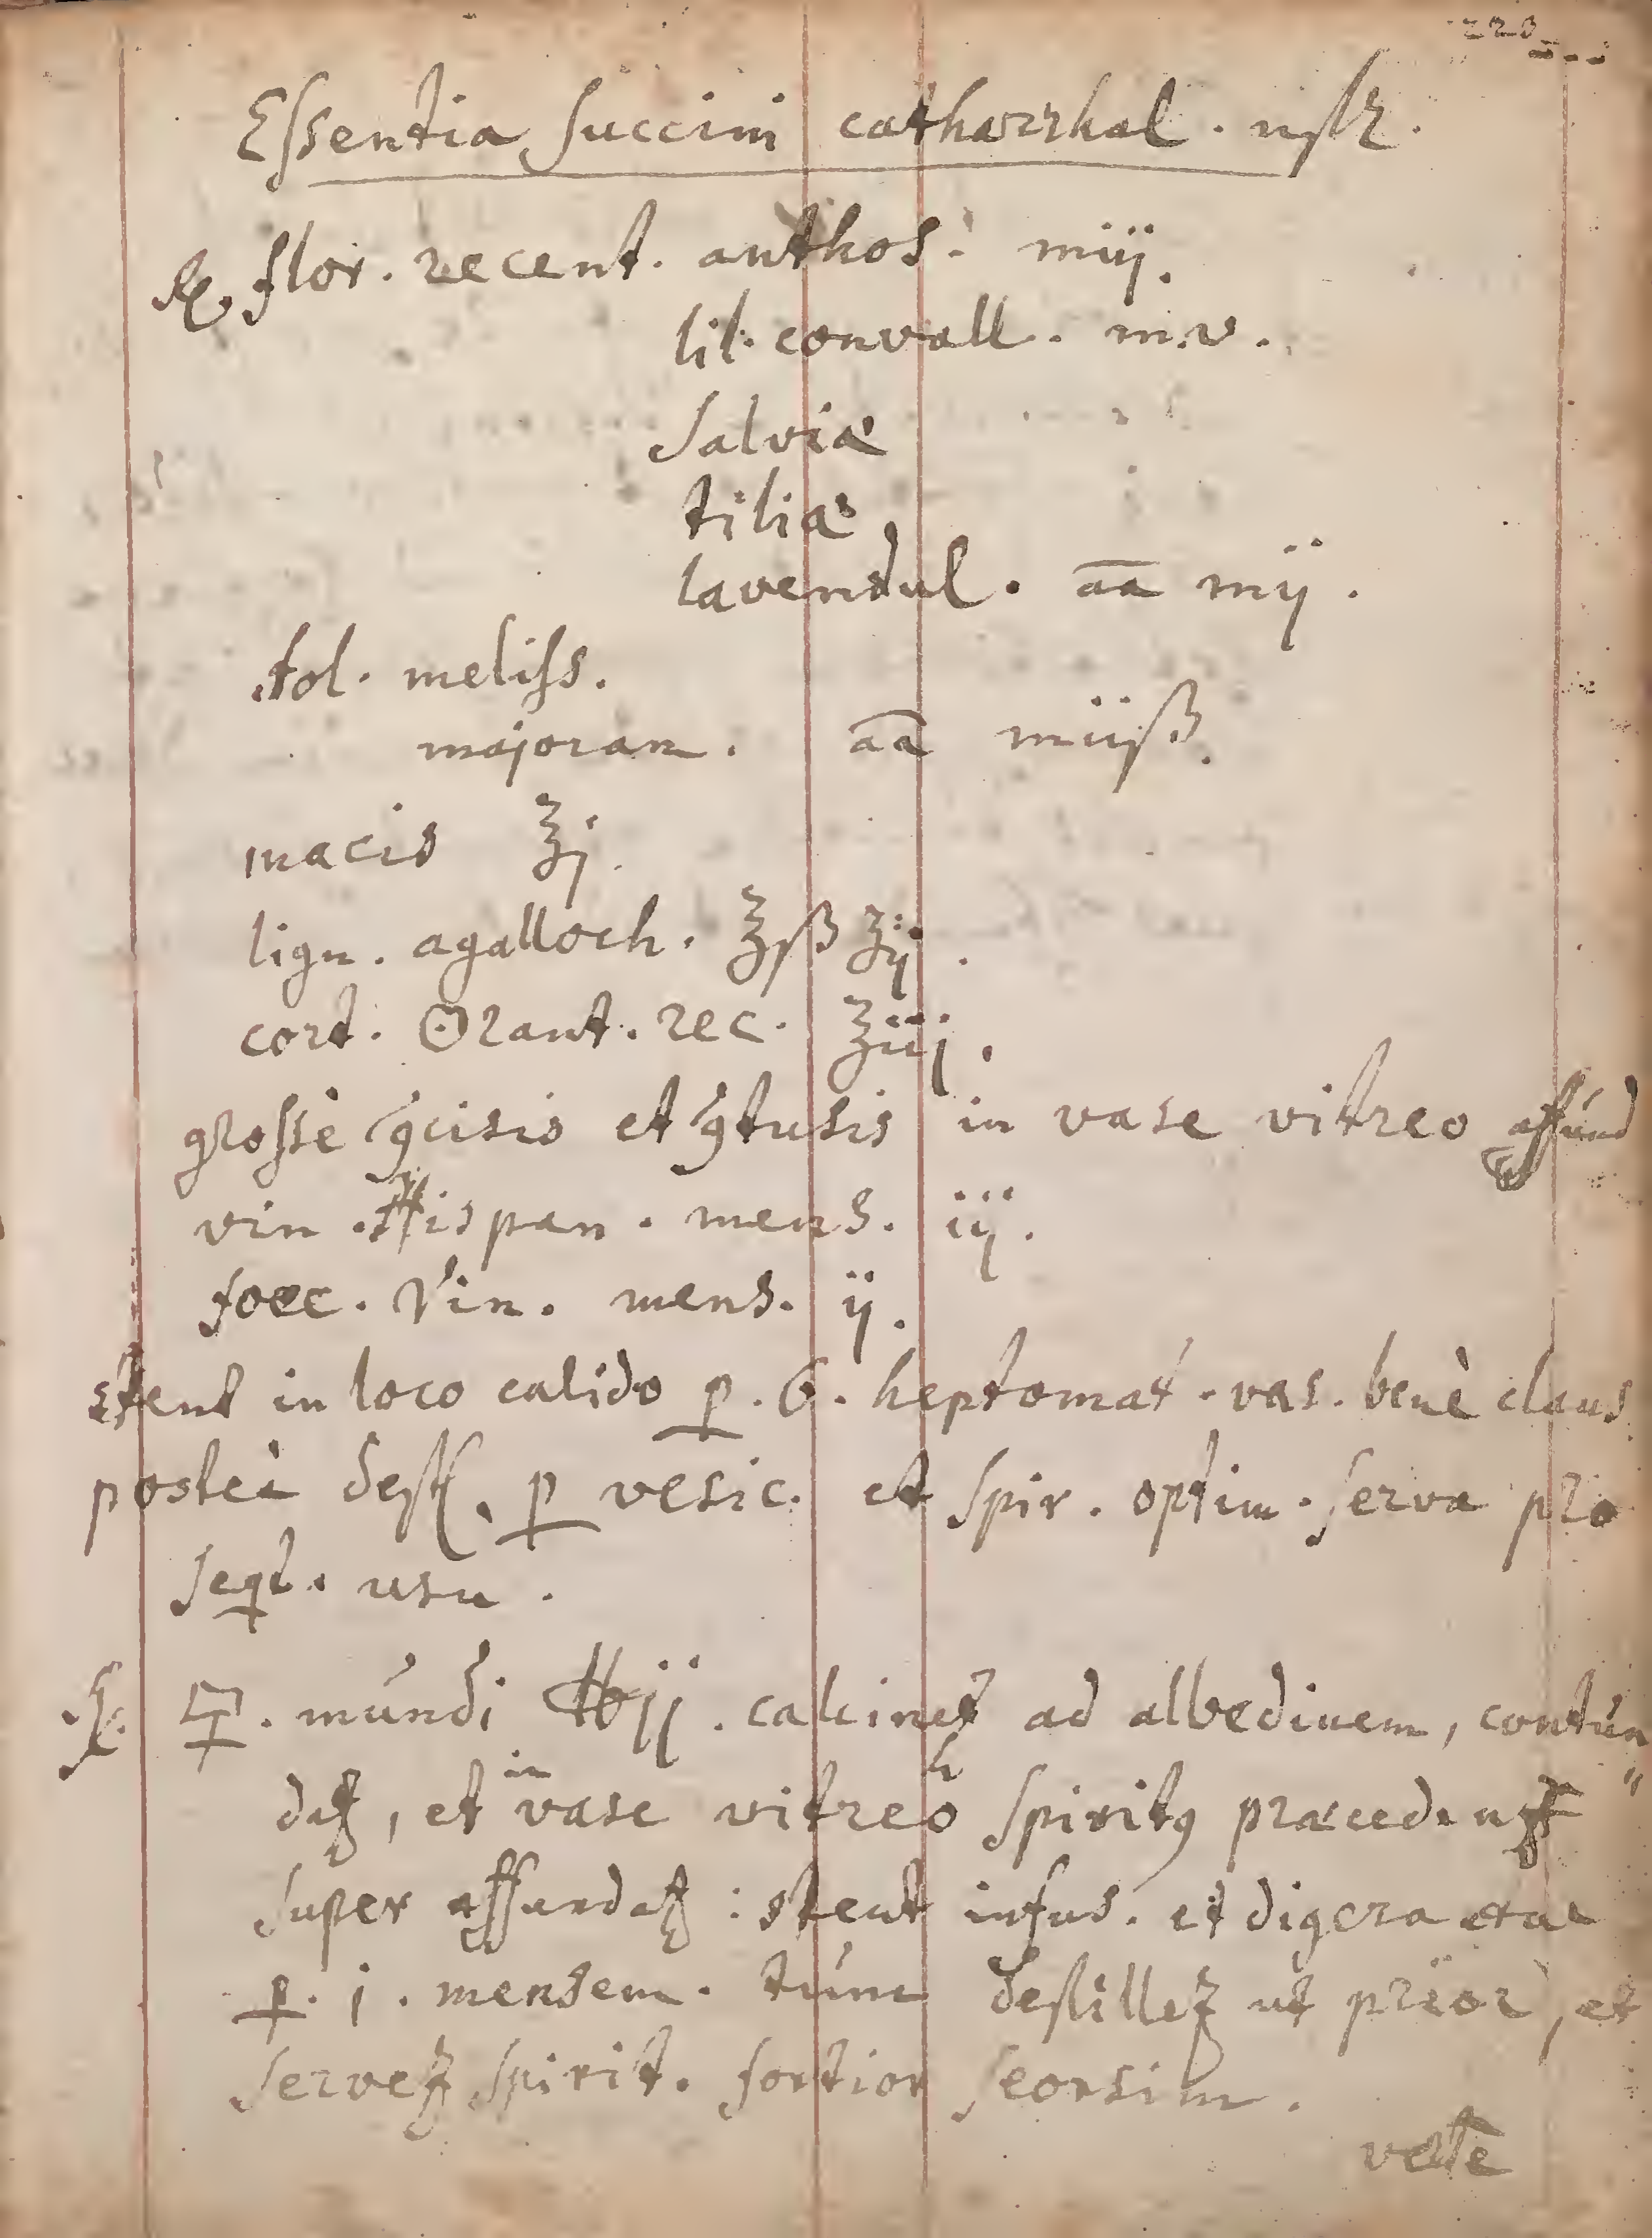 223
Essentia Succini catharrhal. nr̃.
℞. flor. recent. anthos. miij.
lil. convall. m.v.
Salviæ
tiliæ
lavendul. āā mij.
fol. meliss.
majoran. āā miiß.
macis ℥j.
lign. agalloch. ℥ß ʒij.
cort. Orant. rec. ℥iij.
grossè ꝯcisis et ꝯtusis in vase vitreo affund
vin. Hispan. mens. iij.
foec. Vin. mens. ij.
stent in loco calido ꝑ. 6. heptomat. vas. benè claus
posteà dest. ꝑ vesic. et spir. optim. serva pro
seqt. usu.
℞. 🜿. mundi ℔ij. calcinetꝛ ad albedinem, contun„
datꝛ, et in vase vitreo spiritꝰ præcedent
super affundatꝛ: stent infus. et digerantur
ꝑ. j. mensem. tum destilletꝛ ut prior, et
servetꝛ spirit. fortior seorsim.
verte